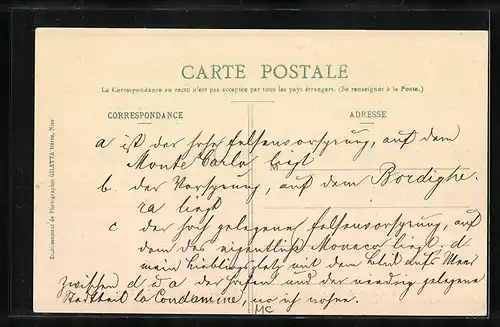 CARTE POSTALE
La Correspondance au recto n'est pas acceptée par tous les pays étrangers. (Se renseigner à la Poste.)
CORRESPONDANCE
ADRESSE
a ist der hohe Felsenvorsprung, auf dem
Monte Carlo liegt
b. der Vorsprung, auf dem Bordighe-
ra liegt
c der hoch gelegene Felsenvorsprung, auf
dem das eigentliche Monaco liegt. d
mein Lieblingsplatz mit dem Blick aufs Meer
zwischen d u a der Hafen und der niedrig gelegene
Stadtteil la Condamine, wo ich wohne.
M
MC
Etablissement de Photographie GILETTA frères, Nice